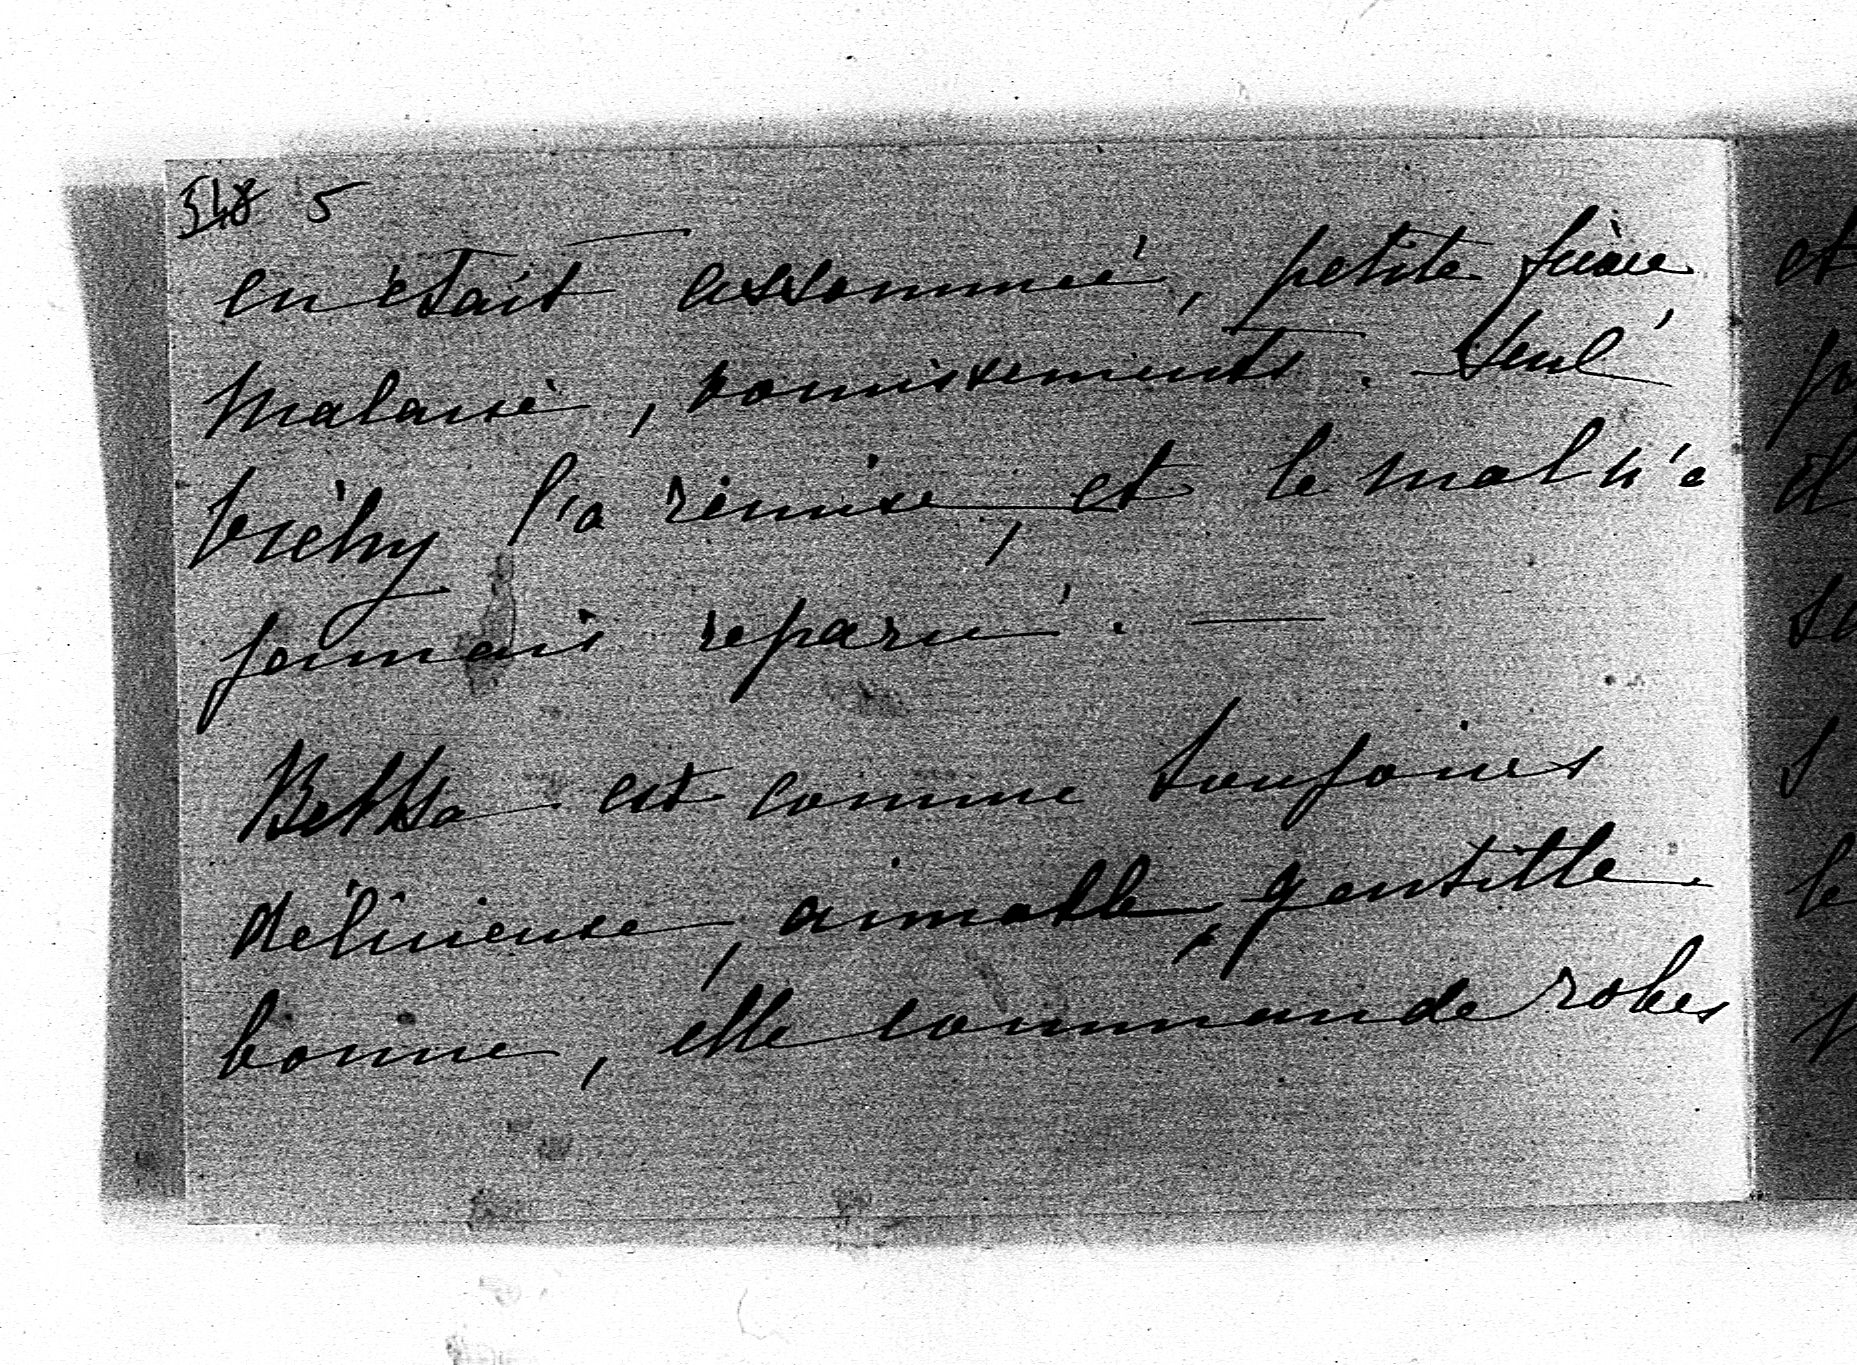 548 5
en était assommée, petite fièvre
malaise, vomissements. Seul
Vichy l'a remise, et le mal n'a
jamais reparu. —
Betka est comme toujours
délicieuse, aimable, gentille
bonne, elle commande robes